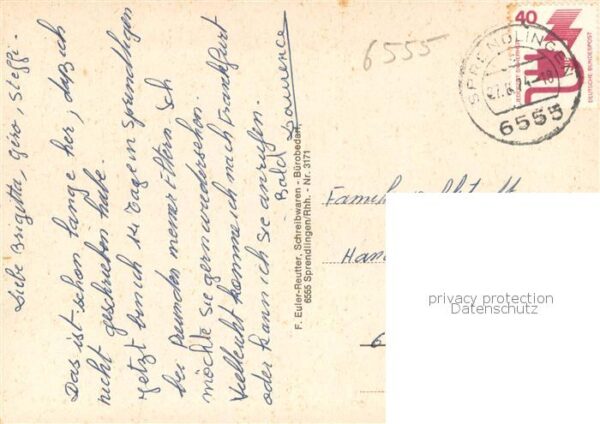 Liebe Brigitta, Gero, Steffi -
Das ist schon lange her, daß ich
nicht geschrieben habe.
Jetzt bin ich 14 Tage in Sprendlingen
bei Freunden meiner Eltern. Ich
möchte Sie gern wiedersehen.
Vielleicht komme ich nach Frankfurt
oder kann ich sie anrufen.
Bald Laurence
F. Euler-Reutter, Schreibwaren - Bürobedarf,
6555 Sprendlingen/Rhh. - Nr. 3171
6555
SPRENDLINGEN
6555
40
DEUTSCHE BUNDESPOST
Familie
Han
6
privacy protection
Datenschutz